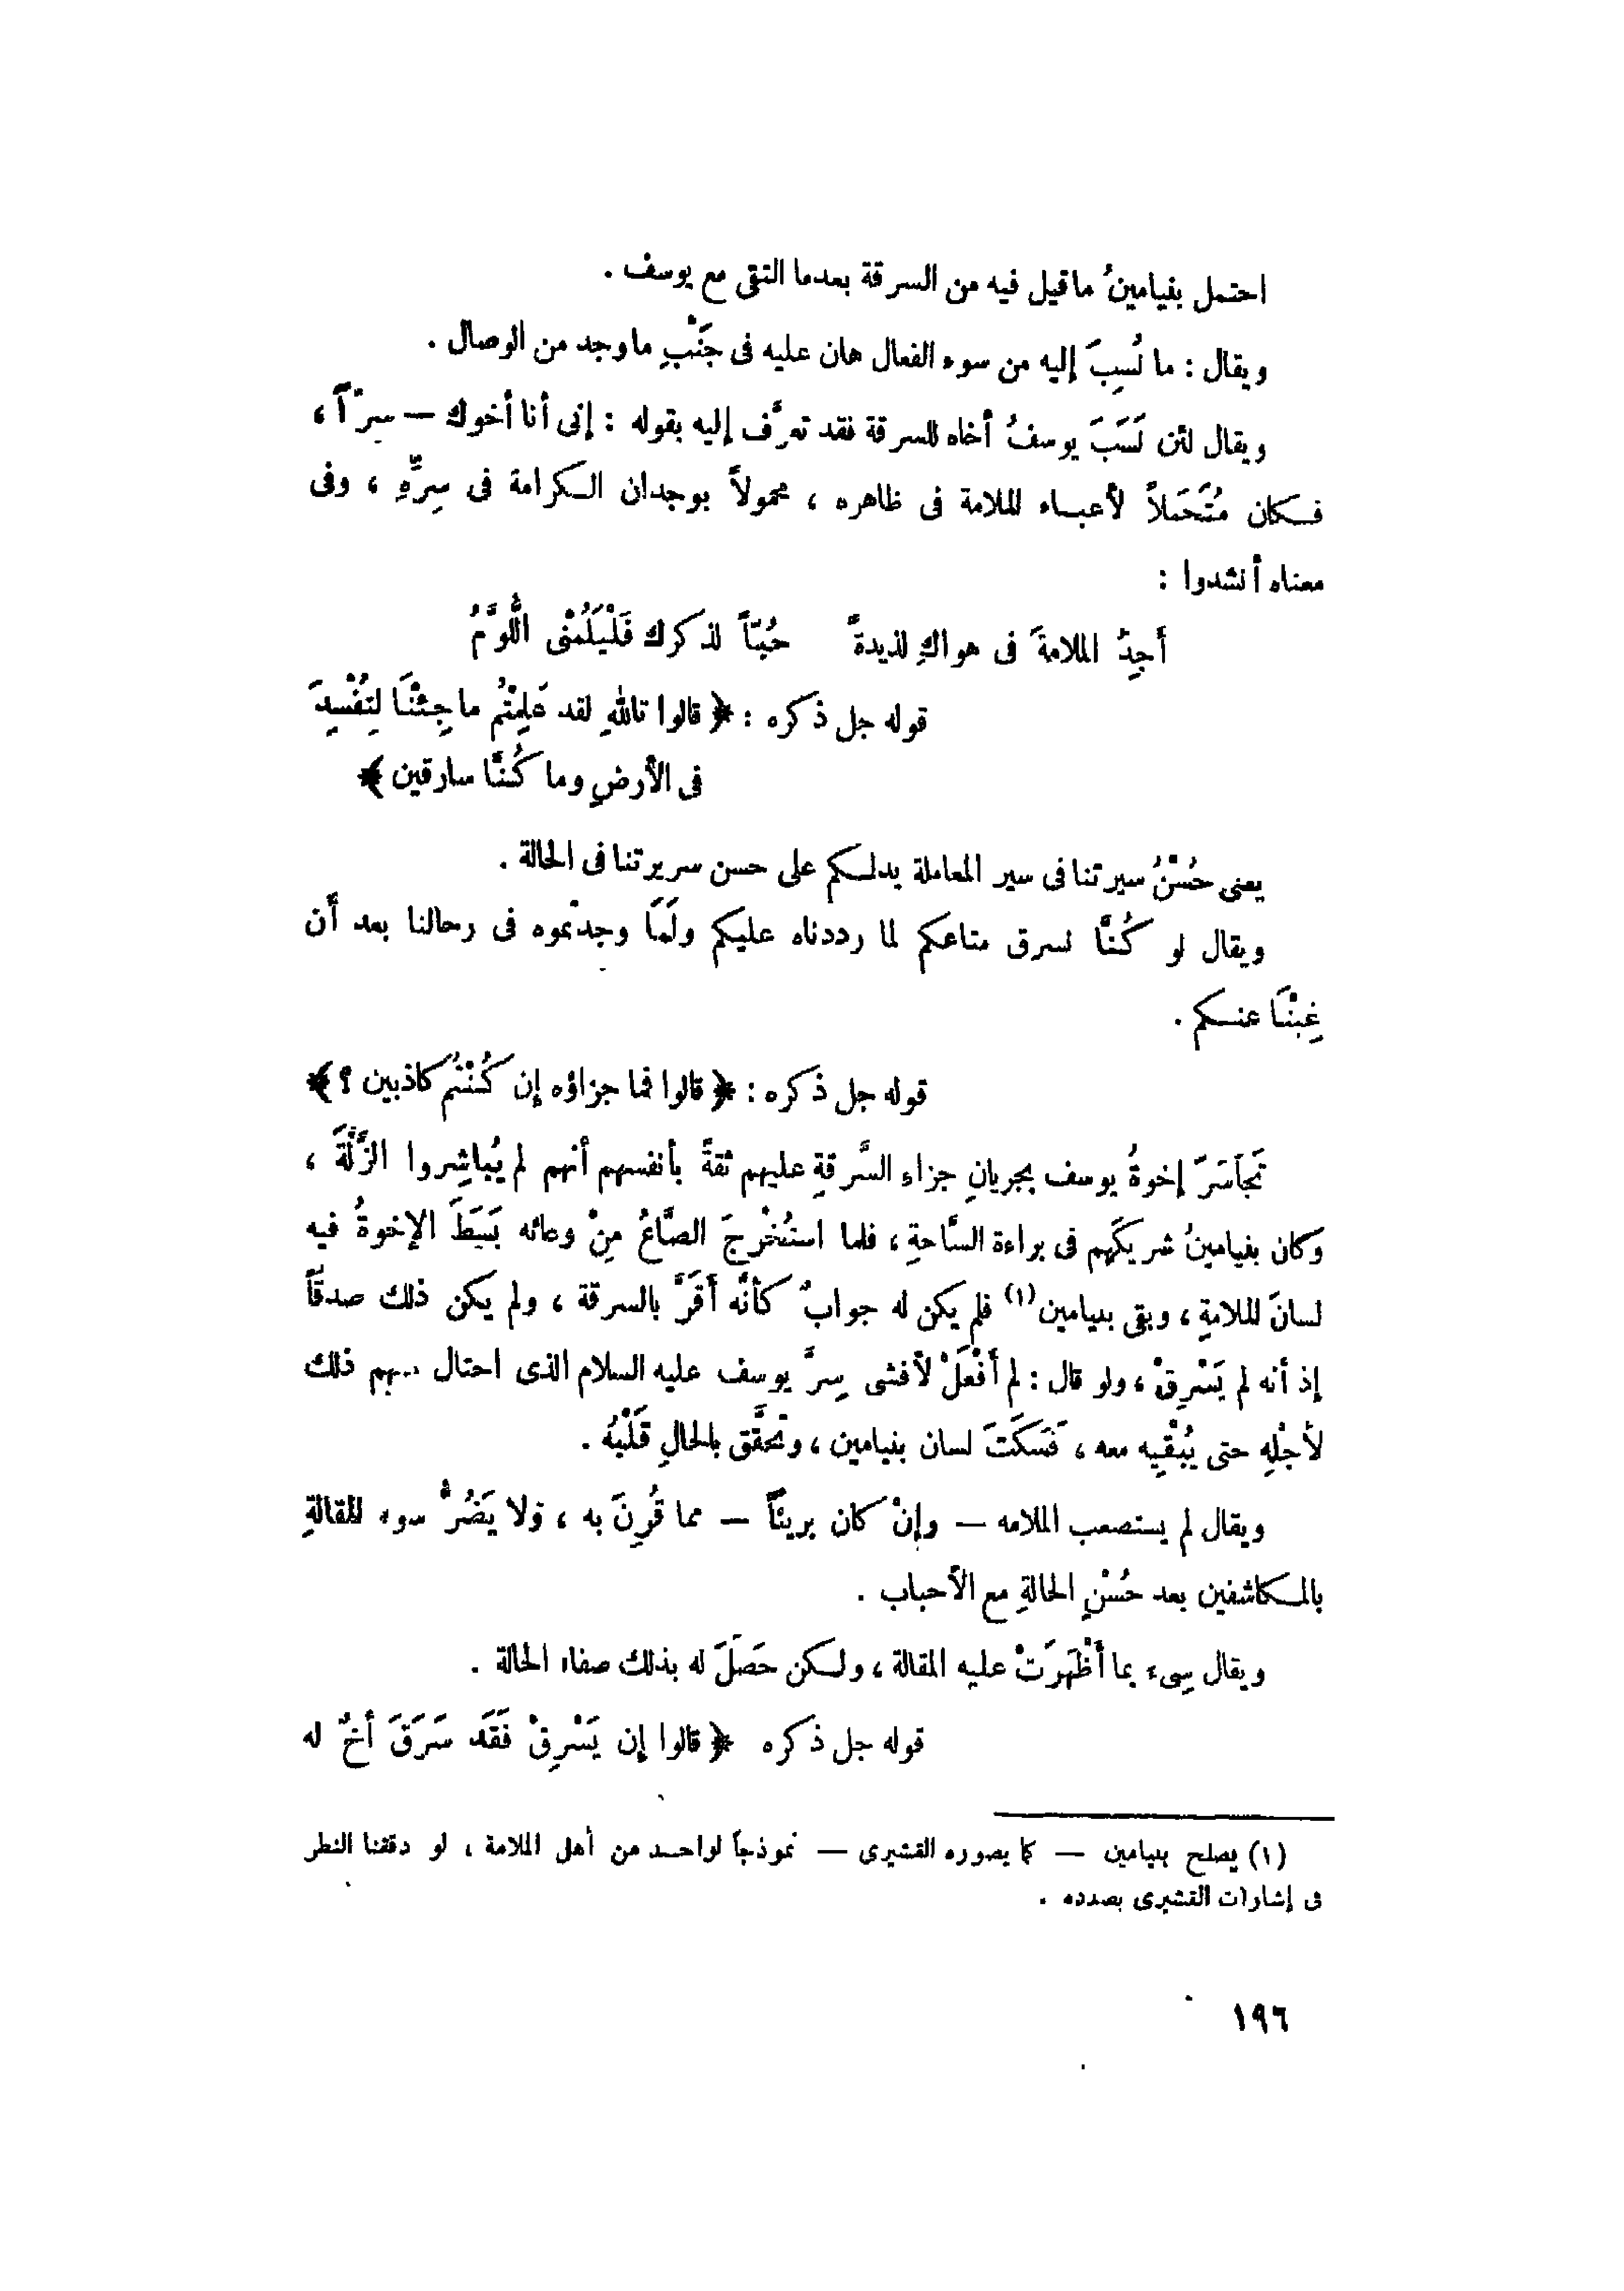 احتمل بنيامينُ ماقيل فيه من السرقة بعدما التقى مع يوسف .
ويقال : ما نُسِبَ إليه من سوء الفعال هان عليه فى جَنْبِ ماوجد من الوصال .
ويقال لئن نَسَبَ يوسفُ أخاه للسرقة فقد تعرَّف إليه بقوله : إنى أنا أخوك — سِرَّاً ،
فكان مُتَحَملاً لأعباء الملامة فى ظاهره ، محمولاً بوجدان الكرامة فى سِرِّهِ ، وفى
معناه أنشدوا :
أَجِدُ الملامةَ فى هواكِ لذيدةً حُبَّاً لذكرك فَلْيَلُمْنى اللُّوَّمُ
قوله جل ذكره : ﴿ قالوا تاللهِ لقد عَلِمْتُم ماجِئْنَا لِنُفْسِدَ
فى الأرضِ وما كُنَّا سارقين ﴾
يعنى حُسْنُ سيرتنا فى سير المعاملة يدلكم على حسن سريرتنا فى الحالة .
ويقال لو كُنَّا نسرق متاعكم لما رددناه عليكم ولَمَا وجدتموه فى رحالنا بعد أن
غِبْنَا عنكم .
قوله جل ذكره : ﴿ قالوا فما جزاؤه إن كُنْتُم كاذبين ؟ ﴾
تجاسَرَ إخوةُ يوسف بجريانِ جزاء السَّرقةِ عليهم ثقةً بأنفسهم أنهم لم يُباشِروا الزَّلَّةَ ،
وكان بنيامينُ شريكَهم فى براءة السَّاحةِ ، فلما استُخْرِجَ الصَّاعُ مِنْ وعائه بَسَطَ الإخوةُ فيه
لسانَ الملامةِ ، وبقى بنيامين(١) فلم يكن له جوابٌ كأنَّه أَقَرَّ بالسرقة ، ولم يكن ذلك صدقاً
إذ أنه لم يَسْرِقْ ، ولو قال : لم أَفْعَلْ لأفشى سِرَّ يوسف عليه السلام الذى احتال ذلك
لأجْلِهِ حتى يُبْقِيه معه ، فَسَكَتَ لسان بنيامين ، وتحقَّق بالحالِ قَلْبُه .
ويقال لم يستصعب الملامه — وإنْ كان بريئاً — مما قُرِنَ به ، ولا يَضُرُّ سوء المقالةِ
بالمكاشفين بعد حُسْنِ الحالةِ مع الأحباب .
ويقال سِىء بما أَظْهَرَتْ عليه المقالة ، ولكن حَصَلَ له بذلك صفاء الحالة .
قوله جل ذكره ﴿ قالوا إن يَسْرِقْ فَقَد سَرَقَ أخٌ له
(١) يصلح بنيامين — كما يصوره القشيرى — نموذجاً لواحد من أهل الملامة ، لو دققنا النطر
فى إشارات القشيرى بصدده .
١٩٦